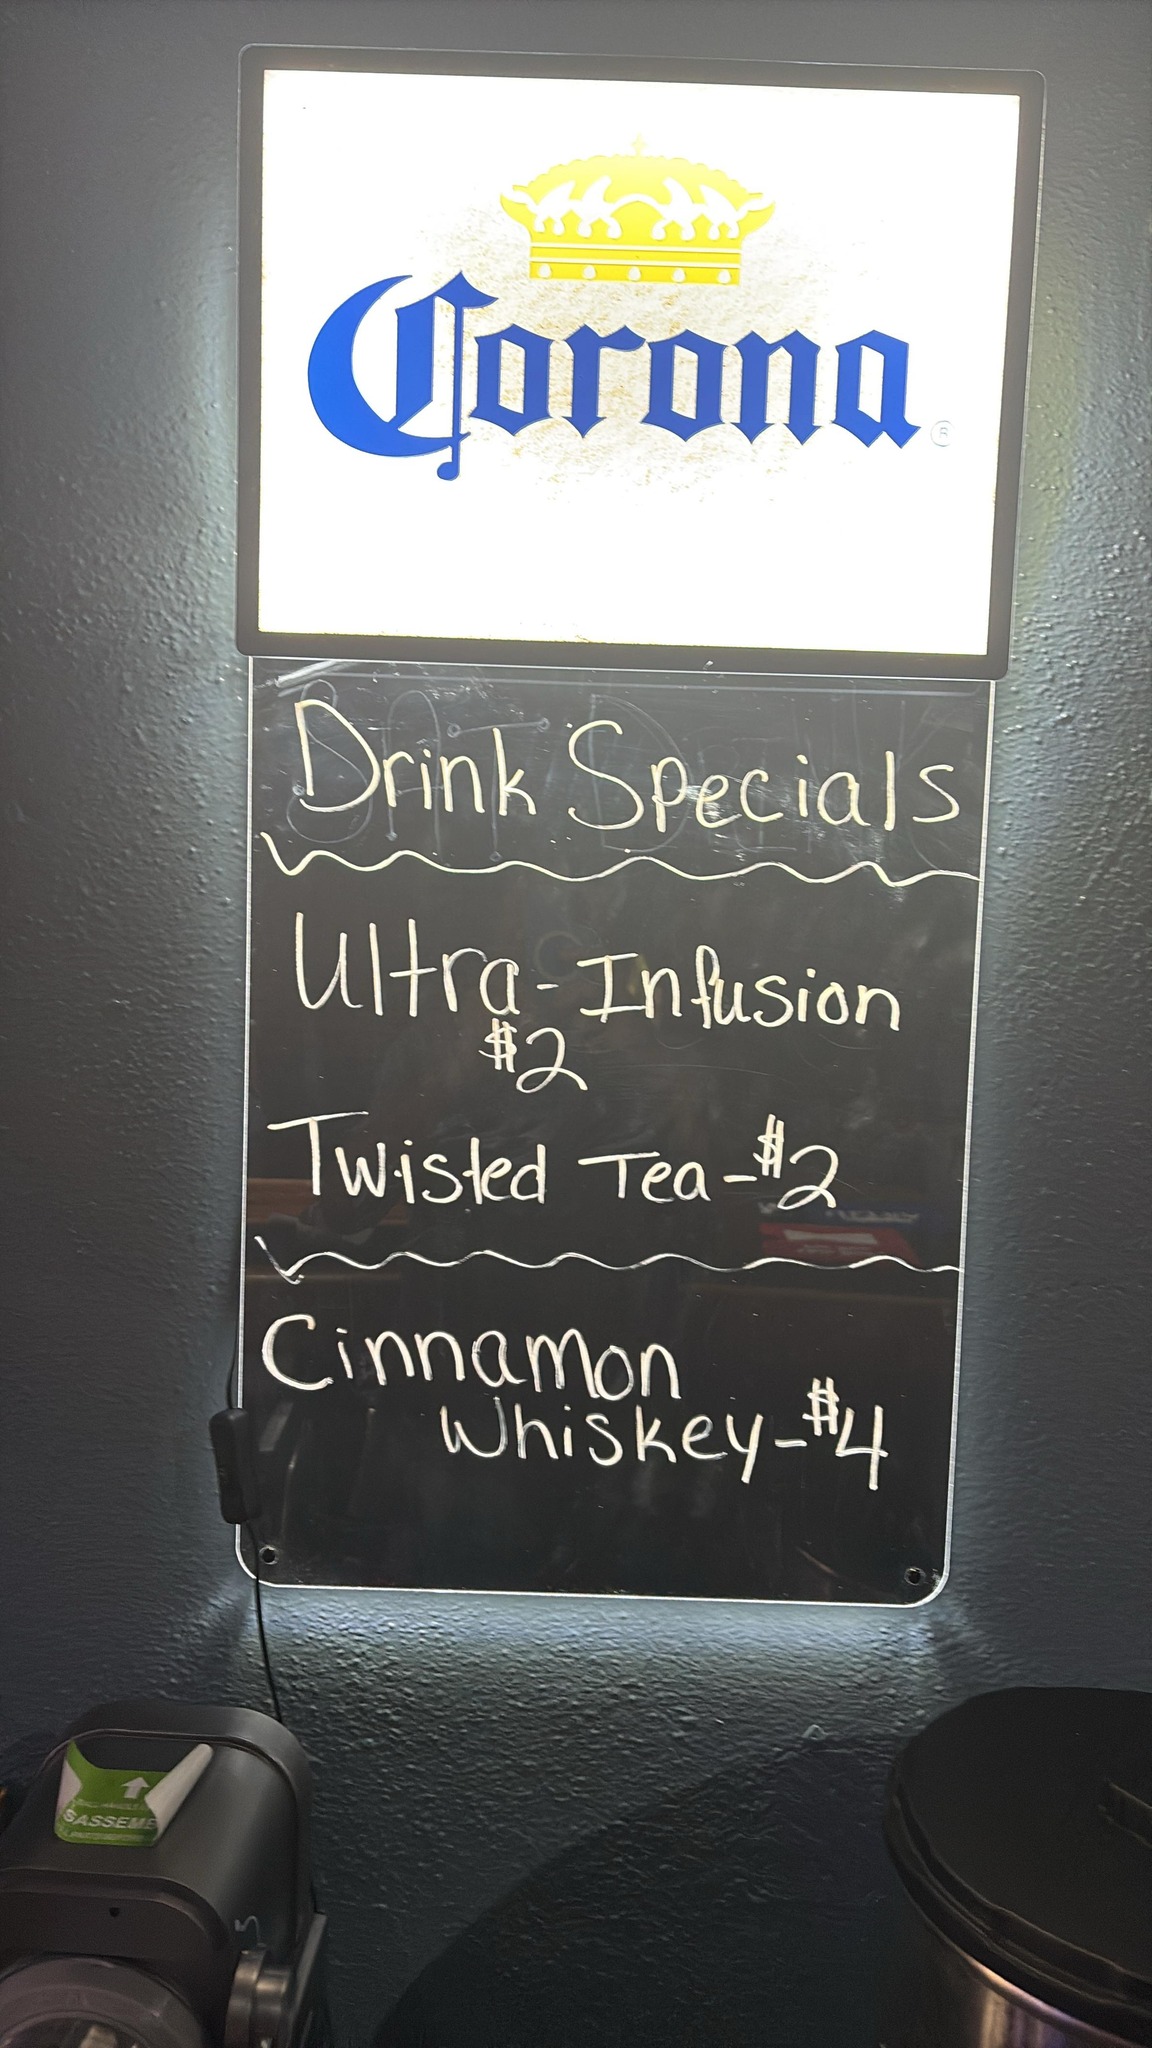 Corona
®
Drink Specials
Ultra-Infusion
$2
Twisted Tea-$2
Cinnamon
Whiskey-$4